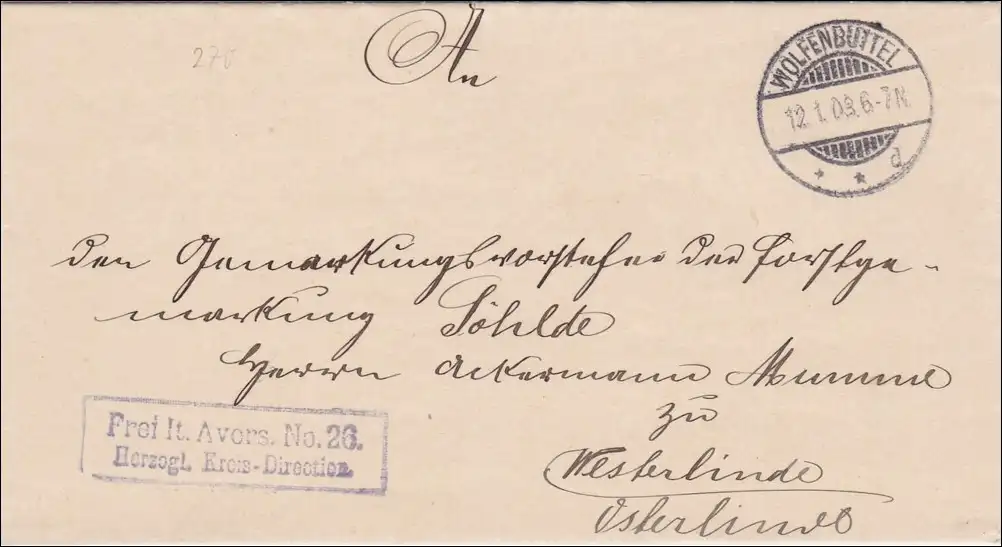 270
An
WOLFENBÜTTEL
12.1.03.6-7N.
d
den Gemarkungsvorsteher der Forstge-
markung Söhlde
Herrn Ackermann Mumme
zu
Westerlinde
Osterlinde
Frei lt. Avers. No. 26.
Herzogl. Kreis-Direction.